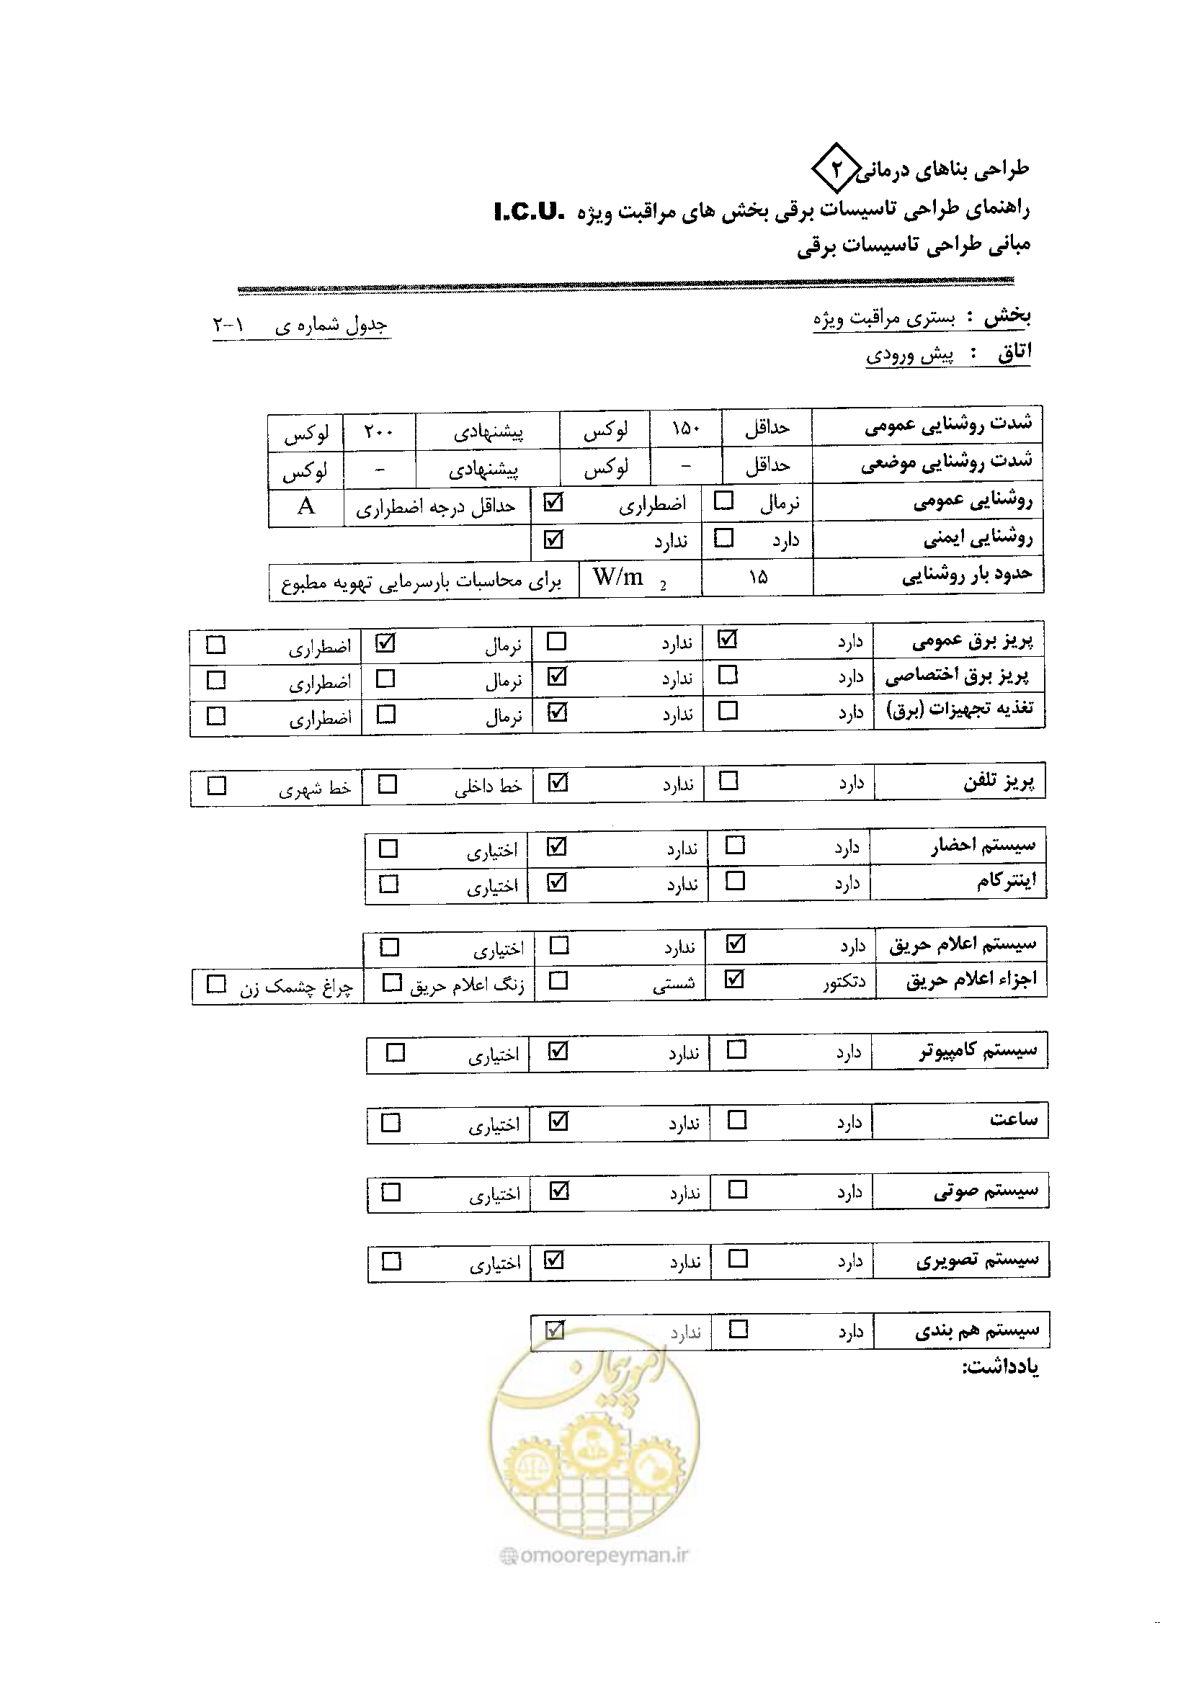 طراحی بناهای درمانی ۲
راهنمای طراحی تاسیسات برقی بخش های مراقبت ویژه I.C.U.
مبانی طراحی تاسیسات برقی
بخش : بستری مراقبت ویژه جدول شماره ی ۱-۲
اتاق : پیش ورودی
شدت روشنایی عمومی حداقل ۱۵۰ لوکس پیشنهادی ۲۰۰ لوکس
شدت روشنایی موضعی حداقل - لوکس پیشنهادی - لوکس
روشنایی عمومی نرمال ☐ اضطراری ☑ حداقل درجه اضطراری A
روشنایی ایمنی دارد ☐ ندارد ☑
حدود بار روشنایی ۱۵ W/m 2 برای محاسبات بارسرمایی تهویه مطبوع
پریز برق عمومی دارد ☑ ندارد ☐ نرمال ☑ اضطراری ☐
پریز برق اختصاصی دارد ☐ ندارد ☑ نرمال ☐ اضطراری ☐
تغذیه تجهیزات (برق) دارد ☐ ندارد ☑ نرمال ☐ اضطراری ☐
پریز تلفن دارد ☐ ندارد ☑ خط داخلی ☐ خط شهری ☐
سیستم احضار دارد ☐ ندارد ☑ اختیاری ☐
اینترکام دارد ☐ ندارد ☑ اختیاری ☐
سیستم اعلام حریق دارد ☑ ندارد ☐ اختیاری ☐
اجزاء اعلام حریق دتکتور ☑ شستی ☐ زنگ اعلام حریق ☐ چراغ چشمک زن ☐
سیستم کامپیوتر دارد ☐ ندارد ☑ اختیاری ☐
ساعت دارد ☐ ندارد ☑ اختیاری ☐
سیستم صوتی دارد ☐ ندارد ☑ اختیاری ☐
سیستم تصویری دارد ☐ ندارد ☑ اختیاری ☐
سیستم هم بندی دارد ☐ ندارد ☑
یادداشت:
امور پیمان
@omoorepeyman.ir